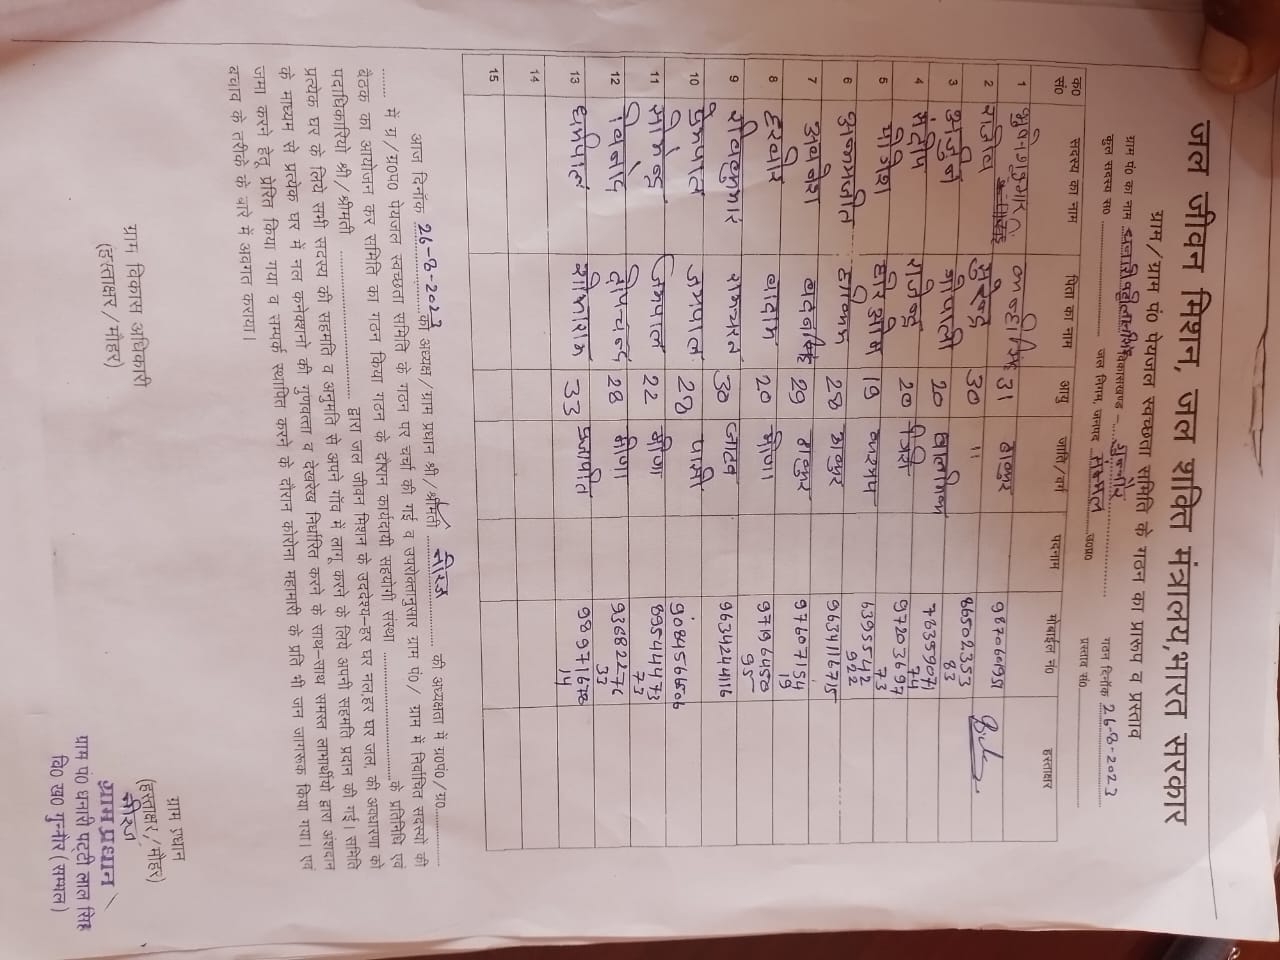 जल जीवन मिशन, जल शक्ति मंत्रालय,भारत सरकार
ग्राम/ग्राम पं० पेयजल स्वच्छता समिति के गठन का प्रारूप व प्रस्ताव
ग्राम पं० का नाम धनारी पट्टी लालसिंह विकासखण्ड – गुन्नौर गठन दिनांक 26-8-2023
कुल सदस्य सं० जल निगम, जनपद सम्भल उ०प्र० प्रस्ताव सं०
क्र० सं० सदस्य का नाम पिता का नाम आयु जाति/वर्ग पदनाम मोबाईल सं० हस्ताक्षर
1 31 ठाकुर 9870609951
2 राजीव सुरेन्द्र 30 " 8650235383
3 20 7835907174
4 संदीप राजेन्द्र 20 9720369773
5 योगेश हरिओम 19 कश्यप 639554292
6 28 ठाकुर 9634116715
7 अवनेश 29 ठाकुर 9760715419
8 हरवीर बादाम 20 9719645095
9 शिवकुमार रामचरन 30 जाटव 9634244116
10 प्रेमपाल जयपाल 28 9084564506
11 22 8954447373
12 विनोद दीपचन्द 28 9368227633
13 धर्मपाल 33 प्रजापति 9897167814
14
15
आज दिनाँक 26-8-2023 को अध्यक्ष/ग्राम प्रधान श्री/श्रीमती नीरज की अध्यक्षता में ग्र०पं०/ग्र०
में ग्रा/ग्र०प० पेयजल स्वच्छता समिति के गठन पर चर्चा की गई व उपरोक्तानुसार ग्राम पं०/ ग्राम में निर्वाचित सदस्यों की
बैठक का आयोजन कर समिति का गठन किया गया गठन के दौरान कार्यदायी सहयोगी संस्था के प्रतिनिधि एवं
पदाधिकारियों श्री/श्रीमती द्वारा जल जीवन मिशन के उददेश्य–हर घर नल,हर घर जल, की अवधारणा को
प्रत्येक घर के लिये सभी सदस्य की सहमति व अनुमति से अपने गाँव में लागू करने के लिये अपनी सहमति प्रदान की गई। समिति
के माध्यम से प्रत्येक घर में नल कनेक्शनो की गुणवत्ता व देखरेख निर्धारित करने के साथ–साथ समस्त लाभार्थीयो द्वारा अंशदान
जमा करने हेतु प्रेरित किया गया व सम्पर्क स्थापित करने के दौरान कोरोना महामारी के प्रति भी जन जागरूक किया गया। एवं
बचाव के तरीके के बारे में अवगत कराया।
ग्राम विकास अधिकारी
(हस्ताक्षर/मौहर)
ग्राम प्रधान
(हस्ताक्षर/मौहर)
नीरज
ग्राम प्रधान
ग्राम पं० धनारी पट्टी लाल सिंह
वि० ख० गुन्नौर (सम्भल)